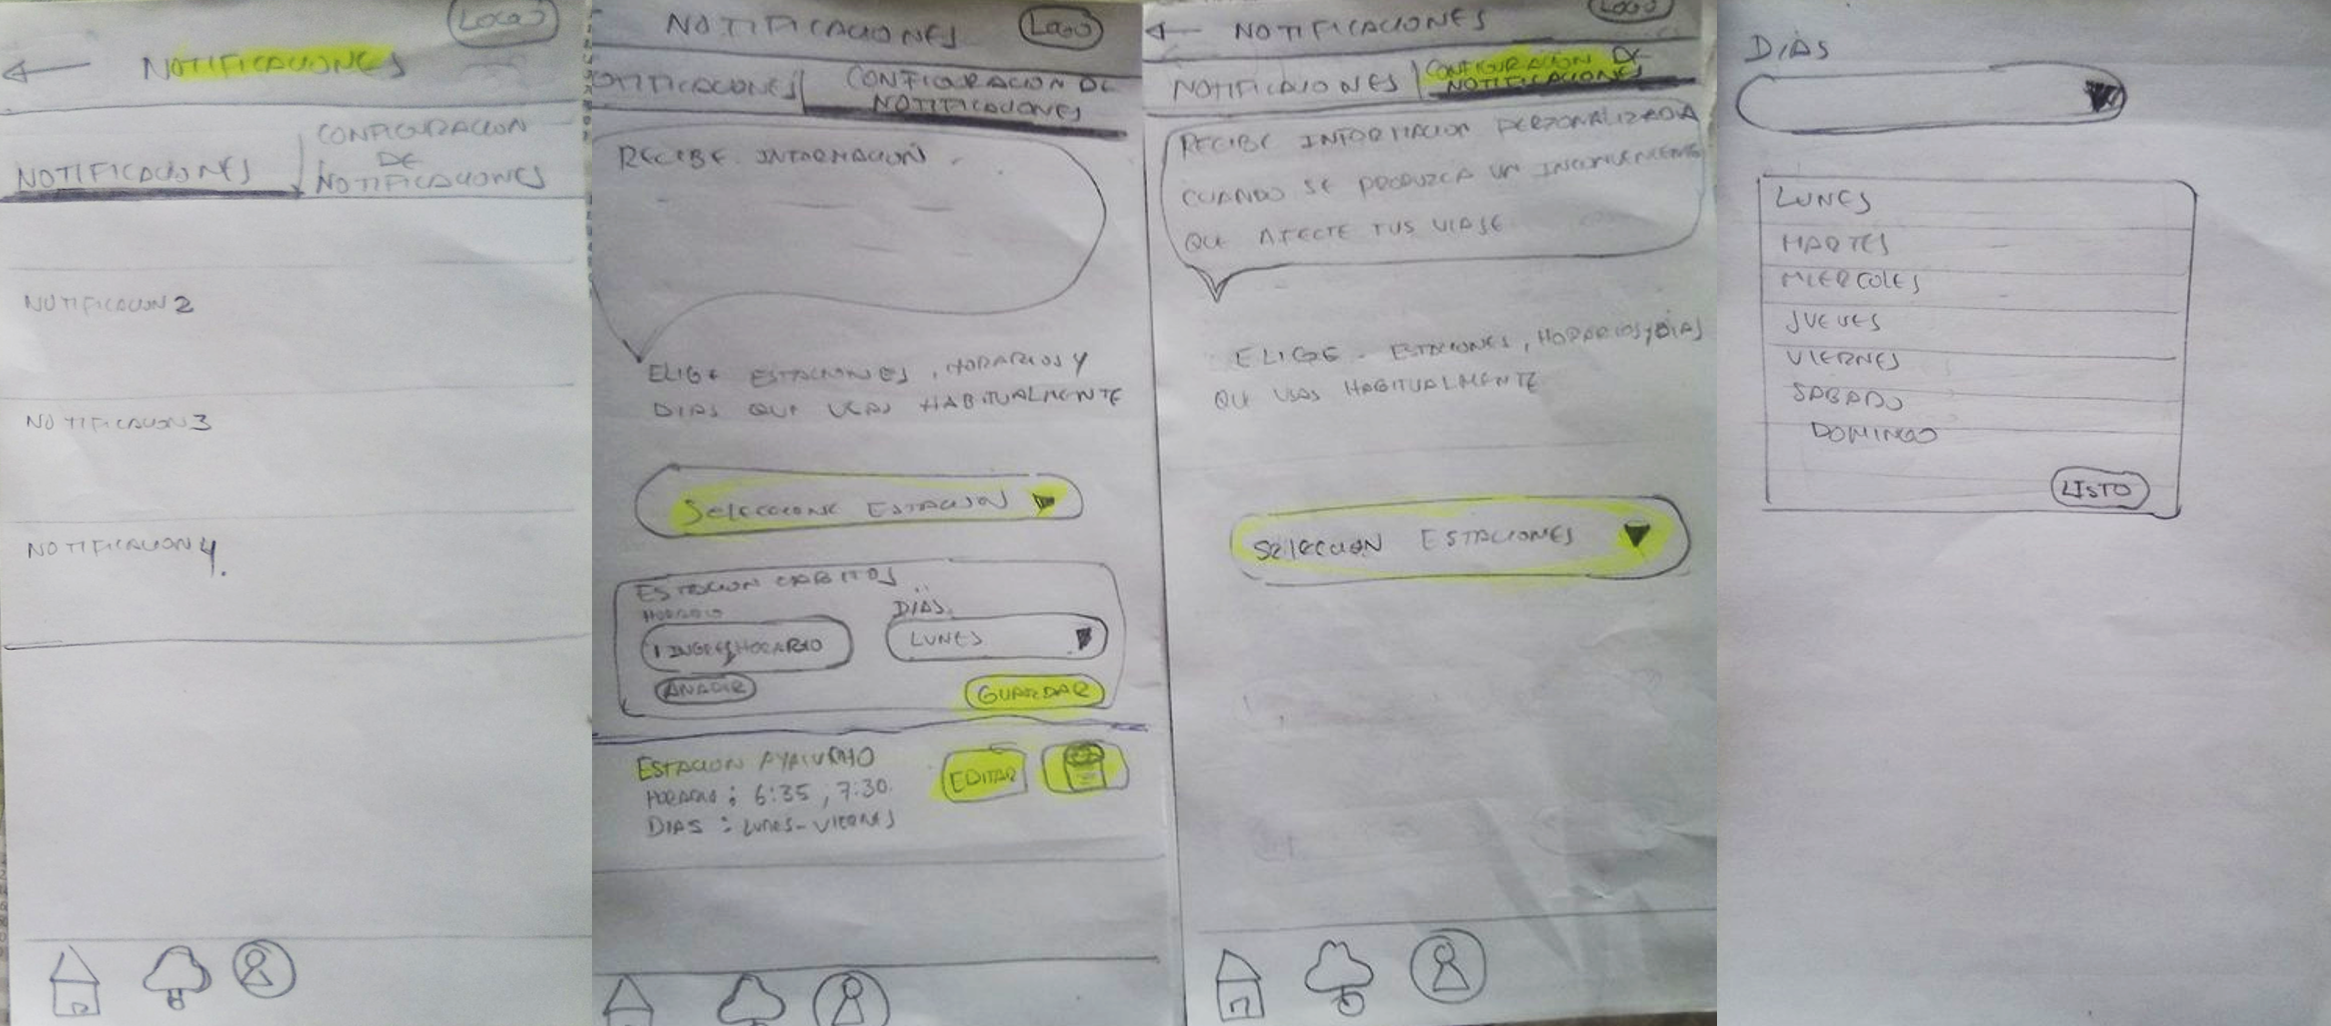 LOGO
NOTIFICACIONES
NOTIFICACIONES
CONFIGURACION
DE
NOTIFICACIONES
NOTIFICACION 2
NOTIFICACION 3
NOTIFICACION 4.
NOTIFICACIONES
LOGO
NOTIFICACIONES
CONFIGURACION DE
NOTIFICACIONES
RECIBE INFORMACION
ELIGE ESTACIONES, HORARIOS Y
DIAS QUE USAS HABITUALMENTE
SELECCIONE ESTACION
ESTACION CABITOS
HORARIO
DIAS
INGRESE HORARIO
LUNES
AÑADIR
GUARDAR
ESTACION AYACUCHO
HORARIO : 6:35 , 7:30
DIAS : LUNES - VIERNES
EDITAR
LOGO
NOTIFICACIONES
NOTIFICACIONES
CONFIGURACION DE
NOTIFICACIONES
RECIBE INFORMACION PERZONALIZADA
CUANDO SE PRODUZCA UN INCONVENIENTE
QUE AFECTE TUS VIAJE
ELIGE - ESTACIONES, HORARIOS y DIAS
QUE USAS HABITUALMENTE
SELECCION ESTACIONES
DIAS
LUNES
MARTES
MIERCOLES
JUEVES
VIERNES
SABADO
DOMINGO
LISTO